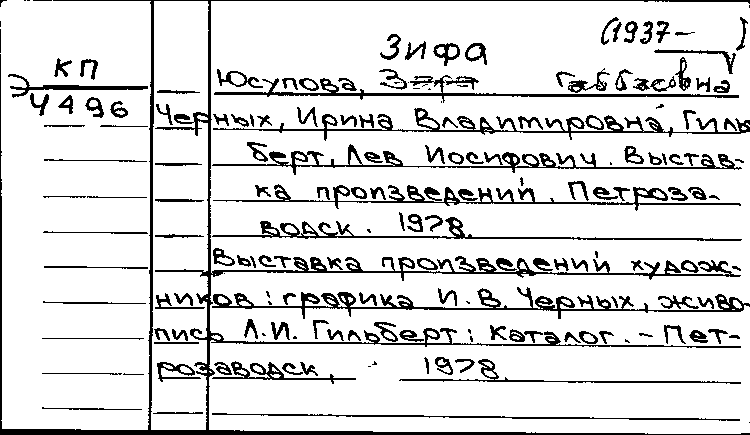 (1937-
Зифа
КП
Юсупова, Зефа Габбасовна
Э
4496
Черных, Ирина Владимировна, Гиль
берт, Лев Иосифович. Выстав-
ка произведений. Петроза-
водск. 1978.
Выставка произведений худож-
ников: графика И.В. Черных, живо-
пись Л.И. Гильберт: Каталог. - Пет-
розаводск, 1978.